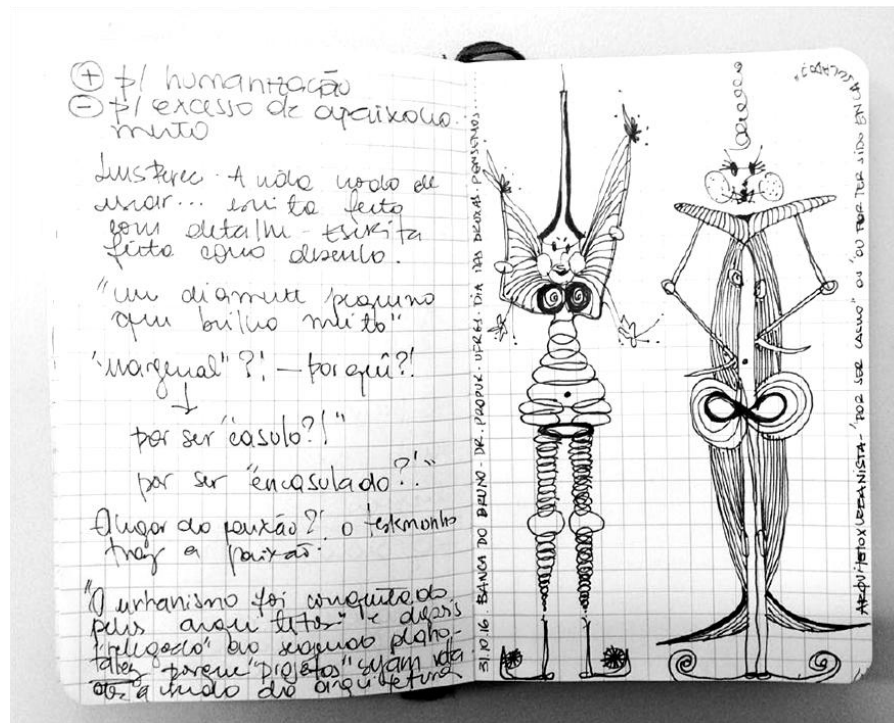 + p/ humanização
- p/ excesso de apaixona
mento
A não modo de
usar... escrita feita
com detalhe - escrita
feita como desenho.
"um diamante pequeno
que brilha muito"
"marginal"?! - por quê?!
↓
por ser "casulo?!"
por ser "encasulado?!"
O lugar da paixão?! o testemunho
traz a paixão.
"O urbanismo foi conquistado
pelos arquitetos" e depois
"relegado" ao segundo plano.
talvez porque "projetos" sejam
a mundo da arquitetura
31.10.16. BANCA DO BRUNO - DR. PROPUR - UFRGS - DIA DAS BRUXAS
ARQUITETOXURBANISTA - "POR SER CASULO" OU "OU POR TER SIDO ENCA
SULADO?"